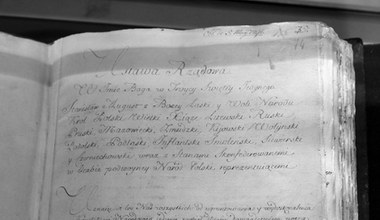 Ustawa Rządowa
W Imie Boga w Troycy Swiętey Jedynego
Stanisław August z Bożey Łaski y Woli Narodu
Krol Polski, Wielki Xiąże Litewski, Ruski
Pruski, Mazowiecki, Zmudzki, Kijowski, Wołynski
Podolski, Podlaski, Inflantski, Smolenski, Siewierski
y Czerniechowski, wraz z Stanami Skonfederowanemi
w liczbie podwoyney Narod Polski reprezentuiącemi
iż los Nas wszystkich od ugruntowania y wydoskonalenia